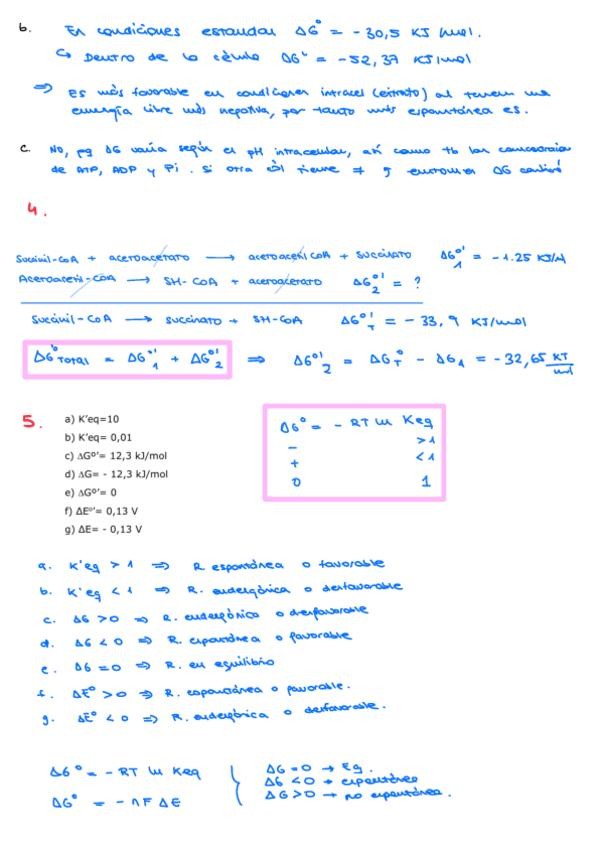 b. En condiciones estandar ΔG° = -30,5 KJ/mol.
↳ Dentro de la célula ΔG'' = -52,37 KJ/mol
⇒ Es más favorable en condiciones intracel (citrato) al tener una
energía libre más negativa, por tanto más espontánea es.
c. No, pq ΔG varía según el pH intracelular, así como tb las concentración
de ATP, ADP y Pi. Si otra cél tiene ≠ y entonces ΔG cambia
4.
Succinil-CoA + acetoacetato ⟶ acetoacetil CoA + succinato ΔG°'₁ = -1.25 KJ/M
Acetoacetil-CoA ⟶ SH-CoA + acetoacetato ΔG°'₂ = ?
Succinil-CoA ⟶ succinato + SH-CoA ΔG°'T = -33,9 KJ/mol
ΔG°'TOTAL = ΔG°'₁ + ΔG°'₂ ⇒ ΔG°'₂ = ΔG°T - ΔG₁ = -32,65 KJ/mol
5. a) K'eq=10
b) K'eq= 0,01
c) ΔGº'= 12,3 kJ/mol
d) ΔG= - 12,3 kJ/mol
e) ΔGº'= 0
f) ΔEº'= 0,13 V
g) ΔE= - 0,13 V
ΔG° = - RT ln Keq
- >1
+ <1
0 1
a. K'eq > 1 ⇒ R espontánea o favorable
b. K'eq < 1 ⇒ R. endergónica o desfavorable
c. ΔG > 0 ⇒ R. endergónica o desfavorable
d. ΔG < 0 ⇒ R. espontánea o favorable
e. ΔG = 0 ⇒ R. en equilibrio
f. ΔE° > 0 ⇒ R. espontánea o favorable.
g. ΔE° < 0 ⇒ R. endergónica o desfavorable.
ΔG° = - RT ln Keq
ΔG° = - nF ΔE
ΔG = 0 → Eq.
ΔG < 0 → espontánea
ΔG > 0 → no espontánea.